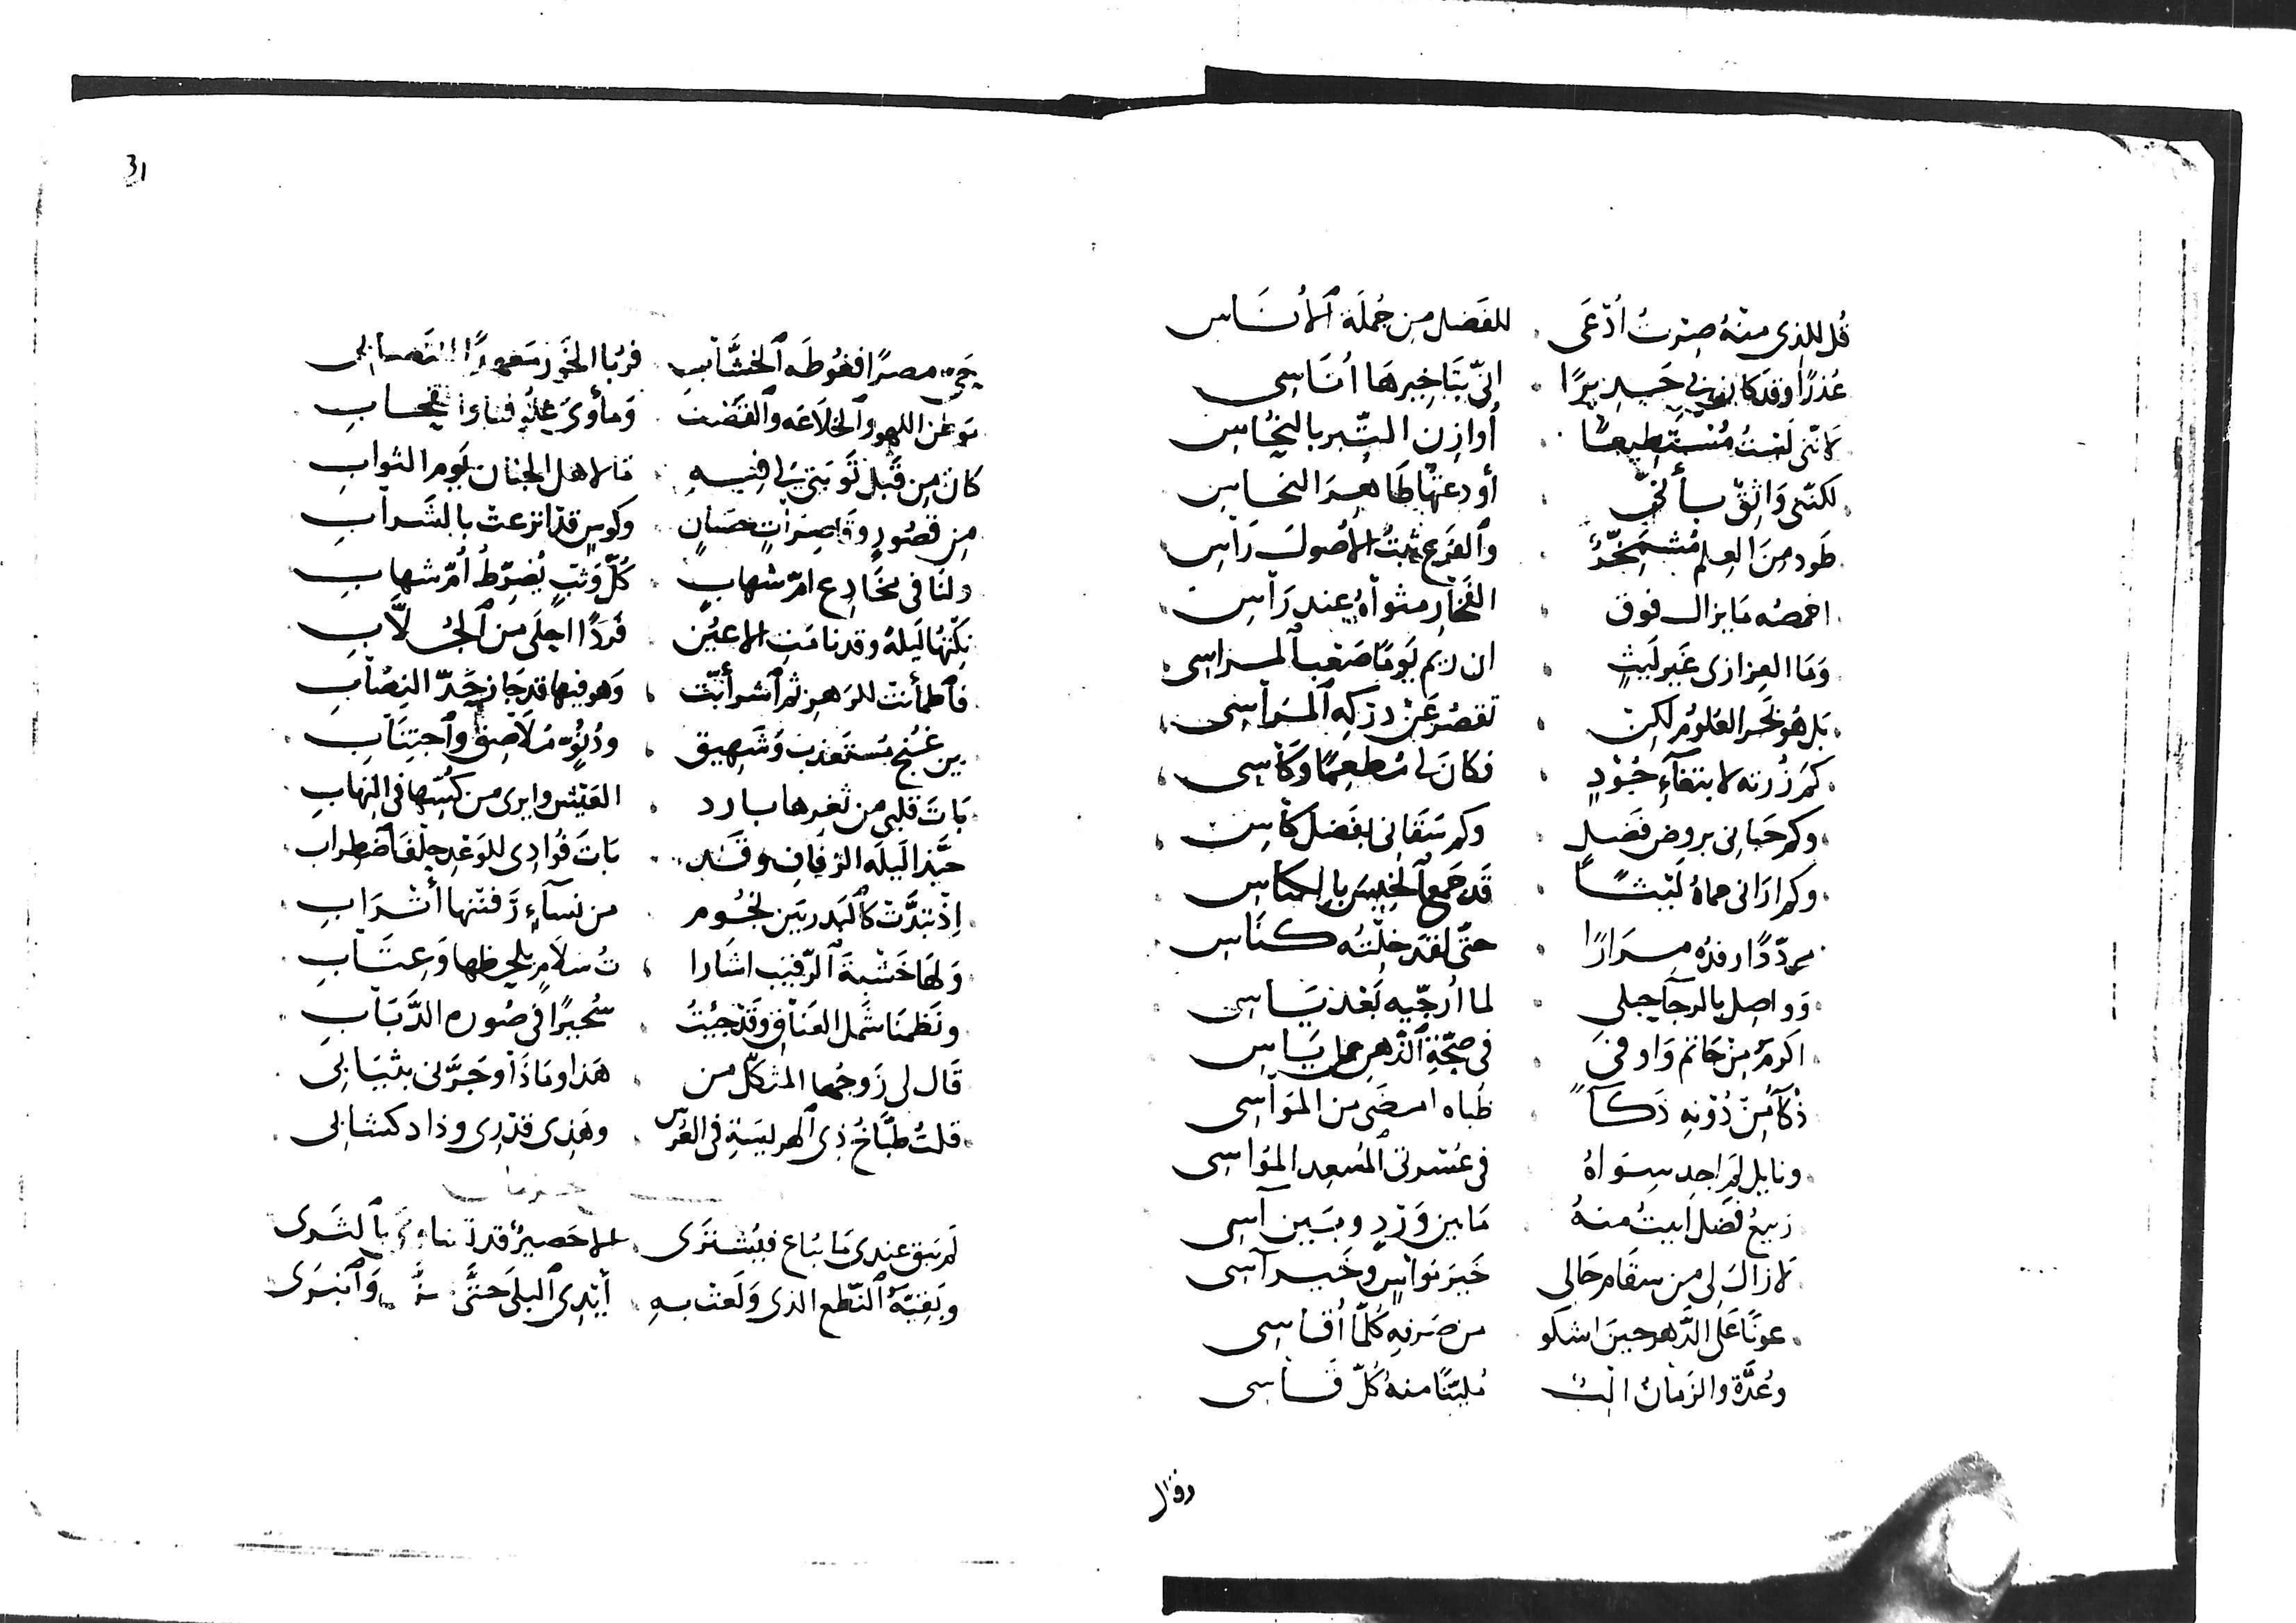 قُل للذى منهُ صِرْتُ اُدْعَى للفَضل من جُملَة الأُنَاسِ
عُذرًا وقد كان بى اِنّى بتَاخِيرهَا اُنَاسى
لانّنى لَسْتُ مُسْتَطِيعًا أُوازِن التِّبر بالنُّحَاسِ
لكنّنى وَاثِقٌ بأننى أودعتهَا طَاهِرَ النحاسِ
طَود مِنَ العِلم مُشْمَخِرٌّ والفَرعِ ثَبْتُ الأُصُولِ رَاسِ
اخمصُه مَا يزال فوق الفَخَارِ مثواهُ عِند رَاسِ
وَمَا العزازى غَير لَيثٍ ان ريم يَومًا صَعْب المراسى
بَل هُو بَحر العُلومُ لكِنْ تقصُر عَنْ دركِهِ المَرَاسِى
كَم زُرته لابتغآءِ جُوْدٍ فكانَ لى مُطعِمًا وكَاسِى
وكم حَبانى بروضِ فَضلٍ وكم سَقَانى بفَضل كَأسِ
وكم ارَانى حماهُ لَيْثًا قَد جَمع الخِيسَ بالكناسِ
مردّدًا رفدُه مِرَارًا حتّى لقد خِلْتُه كنَاسِ
وَواصِل بالرجآ حبلى لما اُرَجّيه بَعْد يَاسى
اكرمُ مِنْ حَاتم وَاوفى فى صِحّةِ الذّهن من اِيَاسِ
ذُكآُ مِنْ دُوْنِه ذَكآً ظُباه امضَى من المَوَاسِى
ونايل لَم اجِد سِوَاهُ فى عُسْرتى المُسْعِد المُوَاسِى
رَبيعُ فَضل ابيتُ منهُ مَا بين وَرْدٍ وبَين آسى
لا زالَ لى من سقَام حَالى خَيرَ نواسٍ وخَير آسى
عونًا عَلى الدَّهر حينَ اشكو من صَرفهِ كُلّمَا اُقَاسى
وعُدَّةً والزمَانُ مُليّنًا منهُ كُلّ قَاسى
وقال
31
حَىّ مصرًا فغُوطَه الخشّاب فرُبَا
موطن اللهو والخلاعَه والقَصْف وَمأوى
كَانَ مِن قَبل تَوبَتى لى فيهِ مَا لاهل الجنان يَوم الثوابِ
مِن قصُورٍ وقَاصِرَاتٍ حسَانٍ وكوسٍ قد اترعتْ بالشَرابِ
ولنَا فى مخَادِع امّ شهابٍ كُلّ وَثبٍ يُضَرّطُ اُمّ شهابِ
نِكتهَا لَيلةً وقد نامَتِ الاعيُن فَردًا احلَى من الجُلاّبِ
فاطمأنتْ للرَهزِ ثم اشرأبّت وَهو فيها قد جَاز حَدّ النِصَابِ
بين غُنج مستَعذبٍ وشَهِيق ودُنُوّ مُلاصِقٍ واجتِنَابِ
بَاتَ قلبى من ثغرها بارد العَيْش وايرى من كُسّها فى التهابِ
حَبّذا لَيلَة الزفافِ وقَد بَاتَ فُؤادِى للوَعْدِ حِلْفَ اضطِرابِ
اِذ تبَدَّتْ كالبَدر بَين نجُوم من نسآءٍ زَفتْها أترَابِ
وَلهَا خَشيةَ الرّقيبِ اشَارا تُ سَلامٍ بلحظها وَعِتَابِ
ونَظمنَا شَمل العنَاقِ وقَد جِئْتُ سُحَيرًا فى صُوره الدَّبَابِ
قَال لى زَوجُها المثكّل من هَذا ومَاذَا وجَرَّنى بثيَابى
قلتُ طبّاخُ ذِى الهرِيسَةِ فى العُرْس وهَذِى قدْرِى وذا دكشابى
لَم يَبق عندى مَا يُباع فيُشترَى الا حَصيرٌ قد تسَاوَى بالثَرى
وبَقِيّةُ النّطع الذى وَلَعَتْ بهِ أيْدِى البلَى حَتَّى وَانبَرَى